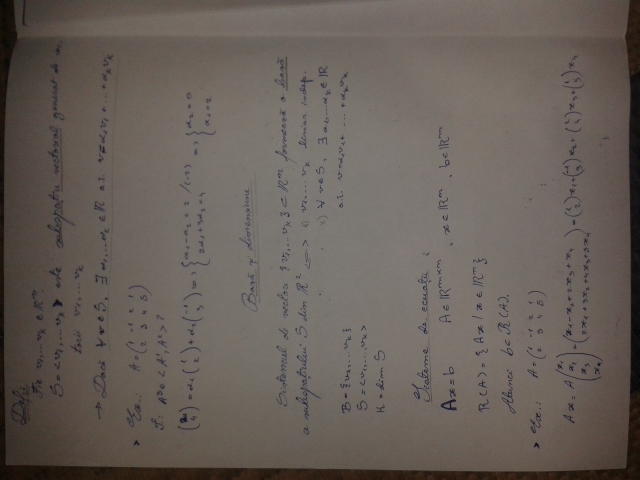 Def:
Fie v₁,...v_k ∈ ℝⁿ
S = <v₁,...v_k> este subspațiu vectorial generat de
v₁,...,v_k
→ Dacă ∀ v∈S, ∃ α₁,...α_k ∈ ℝ a.î. v=α₁v₁+...+α_kv_k
> Ex.: A = (1 -1 2 1
2 3 4 5)
= α₁(1
2) + α₂(-1
3) => {α₁-α₂=2
2α₁+3α₂=4 => {α₂=0
α₁=2
Bază și dimensiune
Sistemul de vectori {v₁,...v_k} ⊂ ℝⁿ formează o bază
a subspațiului S din <=> i) v₁,...v_k liniar indep.
ii) ∀ v∈S, ∃ α₁...α_k ∈ ℝ
a.î. v=α₁v₁+...+α_kv_k
B = {v₁,...v_k}
S = <v₁,...v_k>
k = dim S
Sisteme de ecuații:
Ax=b A∈ℝᵐˣⁿ, x∈ℝⁿ, b∈ℝᵐ
R(A) = {Ax | x∈ℝⁿ}
Atunci b∈R(A).
> Ex.: A = (1 -1 2 1
2 3 4 5)
Ax = A(x₁
x₂
x₃
x₄) = (x₁-x₂+2x₃+x₄
2x₁+3x₂+4x₃+5x₄) = (1
2)x₁+(-1
3)x₂+(2
4)x₃+(1
5)x₄